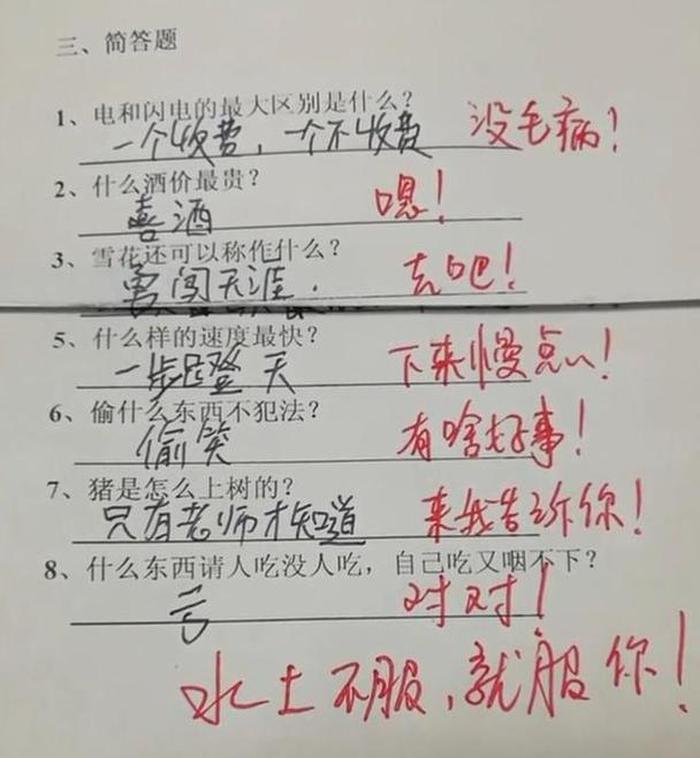 三、简答题
1、电和闪电的最大区别是什么？
一个收费，一个不收费 没毛病！
2、什么酒价最贵？
喜酒 嗯！
3、雪花还可以称作什么？
勇闯天涯. 去吧！
5、什么样的速度最快？
一步登天 下来慢点儿！
6、偷什么东西不犯法？
偷笑 有啥好事！
7、猪是怎么上树的？
只有老师才知道 来我告诉你！
8、什么东西请人吃没人吃，自己吃又咽不下？
亏 对对！
水土不服，就服你！